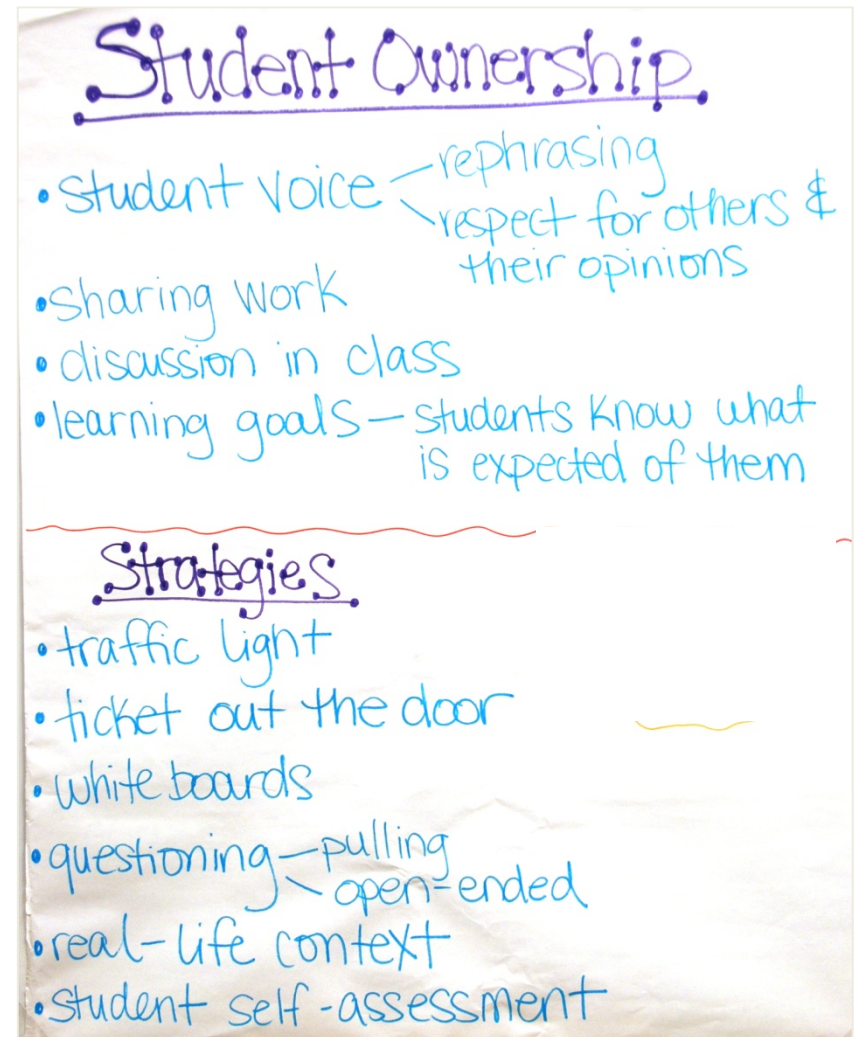 Student Ownership
• student voice – rephrasing
– respect for others &
their opinions
• sharing work
• discussion in class
• learning goals – students know what
is expected of them
Strategies
• traffic light
• ticket out the door
• white boards
• questioning – pulling
– open-ended
• real-life context
• student self-assessment